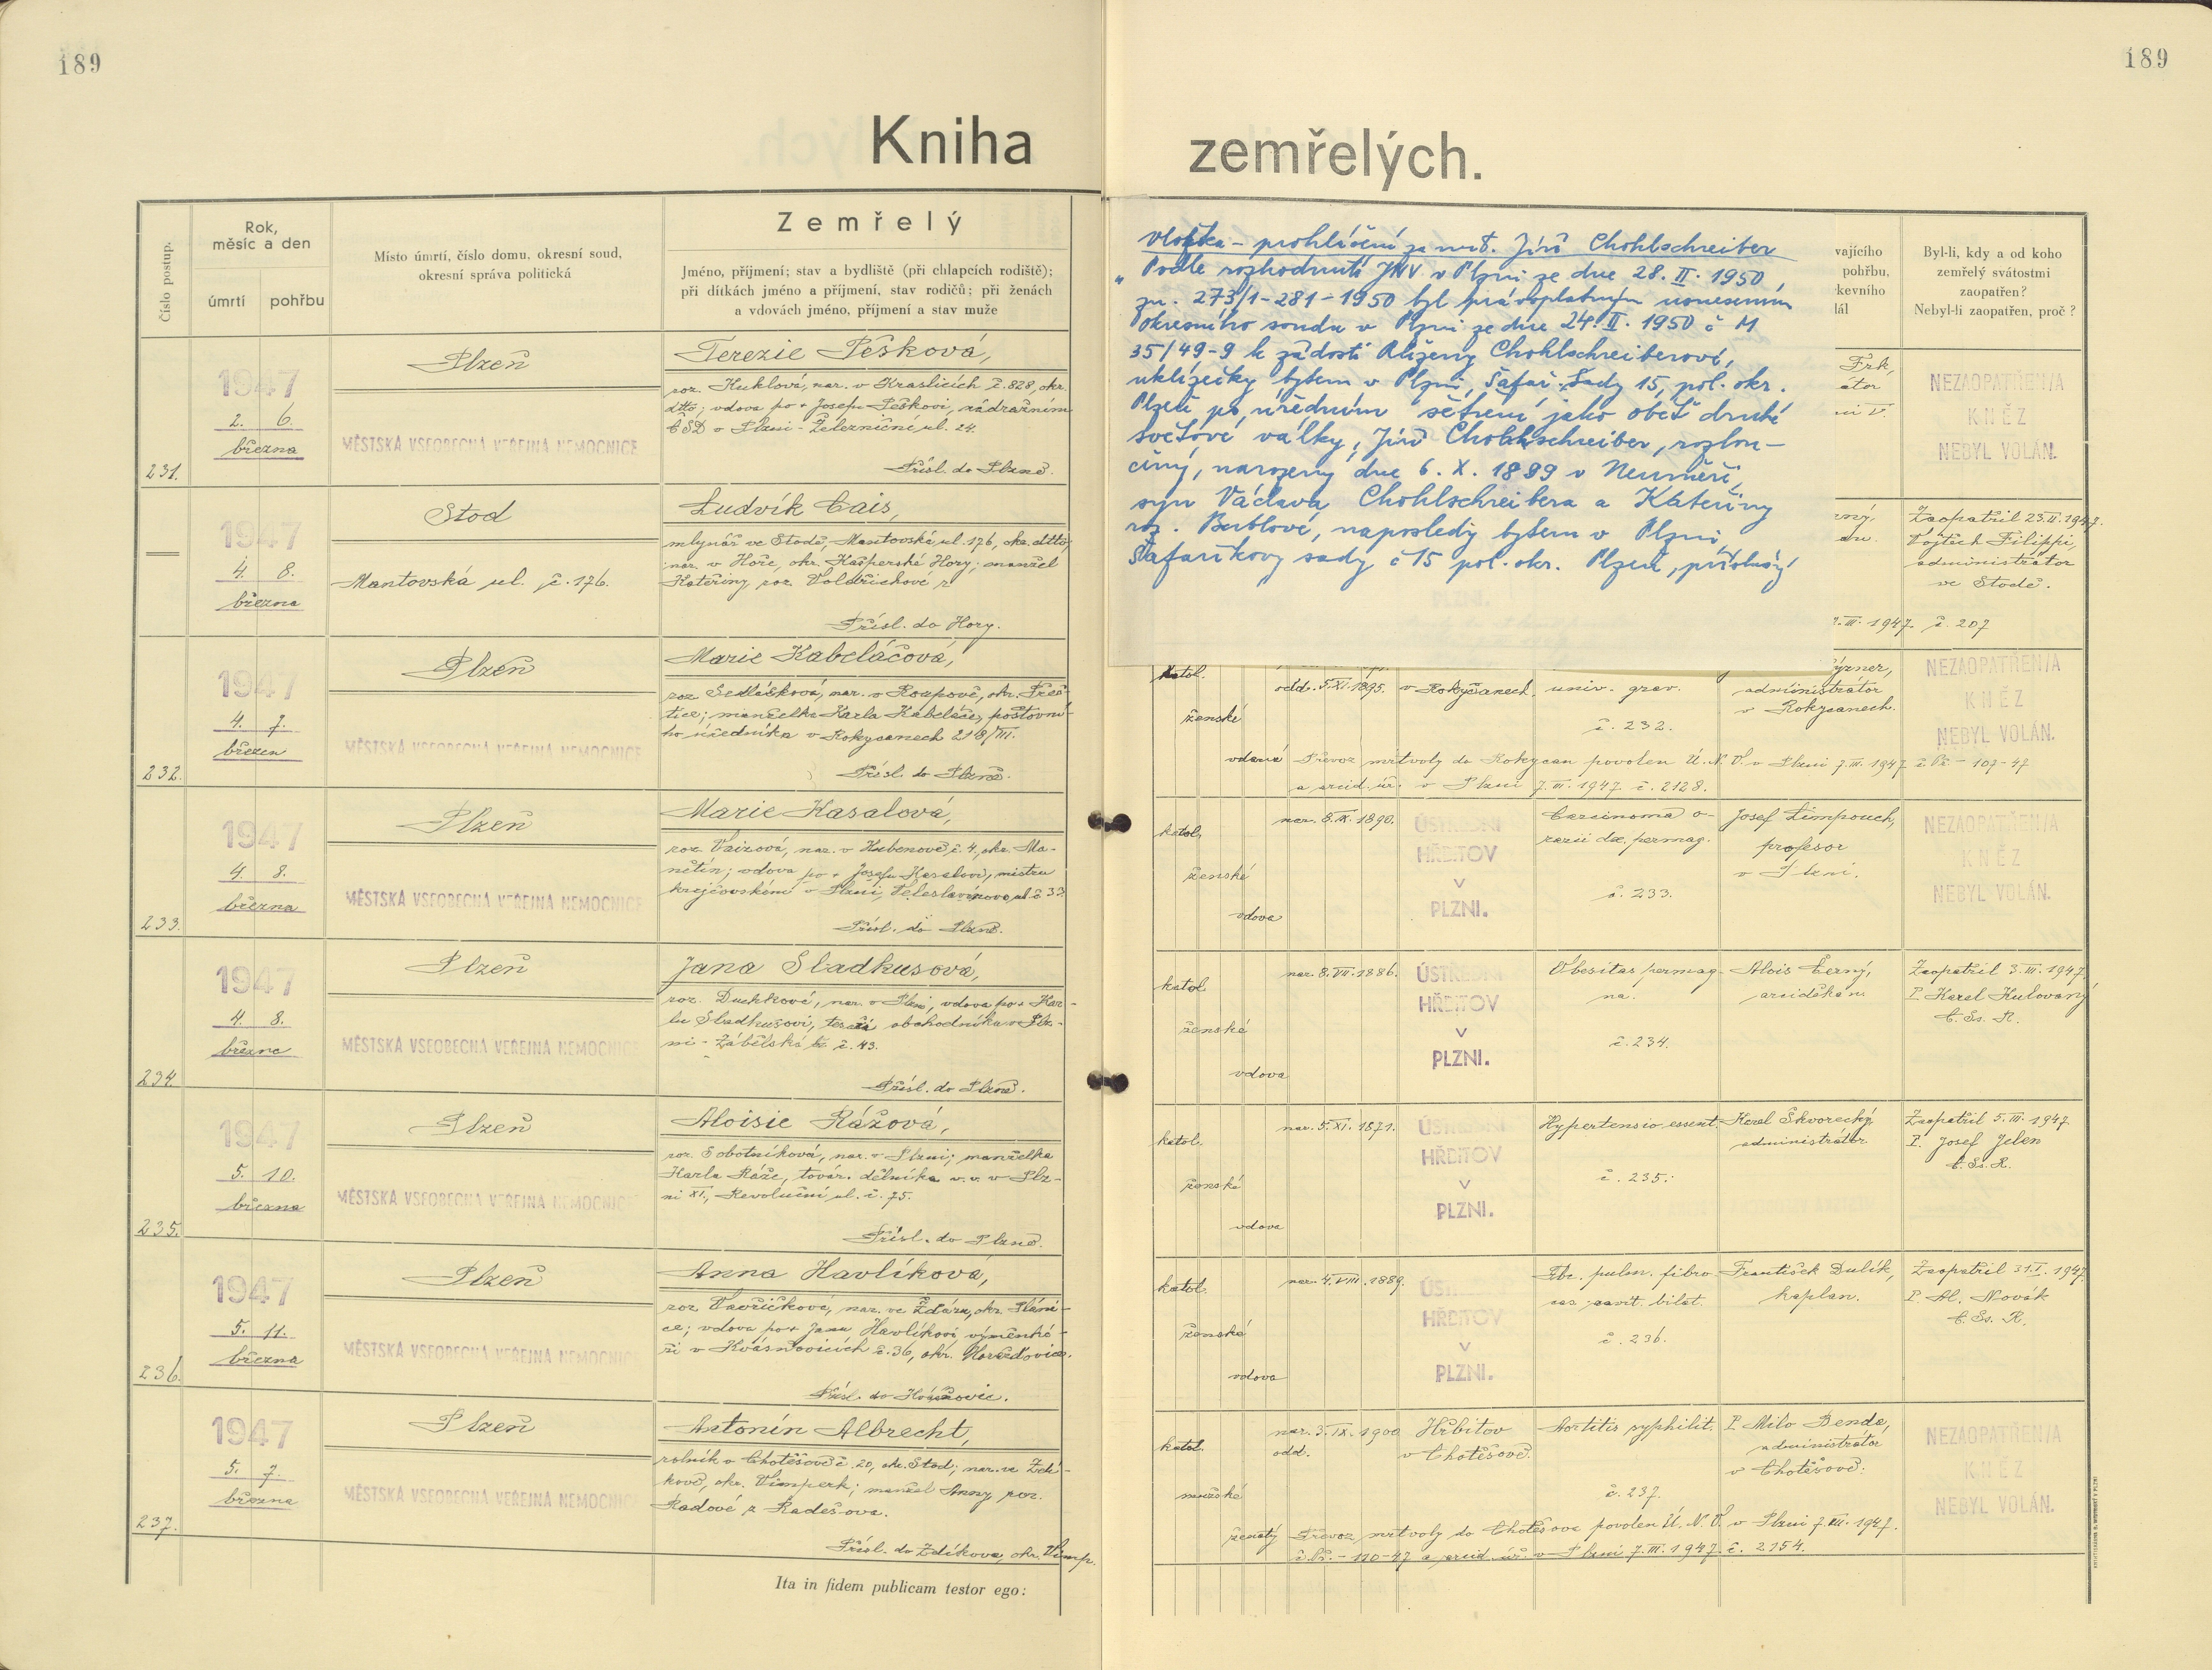 189
189
Kniha
zemřelých.
Číslo postup.
Rok,
měsíc a den
úmrtí
pohřbu
Místo úmrtí, číslo domu, okresní soud,
okresní správa politická
Zemřelý
Jméno, příjmení; stav a bydliště (při chlapcích rodiště);
při dítkách jméno a příjmení, stav rodičů; při ženách
a vdovách jméno, příjmení a stav muže
vajícího
pohřbu,
kevního
lál
Byl-li, kdy a od koho
zemřelý svátostmi
zaopatřen?
Nebyl-li zaopatřen, proč?
Vložka - prohlášení za mrt. Jiří Chohlschreiber
"Podle rozhodnutí JNV v Plzni ze dne 28. II. 1950,
zn. 273/1-281-1950 byl pravoplatným usnesením
Okresního soudu v Plzni ze dne 24. II. 1950 č M
35/49-9 k žádosti Alženy Chohlschreiberové,
uklízečky bytem v Plzni, Šafař. Sady 15, pol. okr.
Plzeň po úředním šetření jako oběť druhé
světové války, Jiří Chohlschreiber, rozlou-
čený, narozený dne 6. X. 1899 v Neuměři,
syn Václava Chohlschreibera a Kateřiny
roz. Bublové, naposledy bytem v Plzni,
Šafaříkovy sady č 15 pol. okr. Plzeň, příslušný
231.
1947
2. 6.
března
Plzeň
MĚSTSKÁ VŠEOBECNÁ VEŘEJNÁ NEMOCNICE
Terezie Pešková,
roz. Kuklová, nar. v Kraslicích č. 828, okr.
dtto; vdova po + Josefu Peškovi, zádražním
ČSD v Plzni - Železniční ul. 24.
Přísl. do Plzně.
Frk,
NEZAOPATŘEN/A
KNĚZ
NEBYL VOLÁN.
1947
4. 8.
března
Stod
Mantovská ul. č. 176.
Ludvík Cais,
mlynář ve Stodě, Mantovská ul. 176, okr. dtto;
nar. v Hoře, okr. Kašperské Hory; manžel
Kateřiny, roz. Voldřichové
Přísl. do Hory.
Zaopatřil 23.II.1947.
Vojtěch Filippi,
administrátor
ve Stodě.
III. 1947. č. 207
232.
1947
4. 7.
březen
Plzeň
MĚSTSKÁ VŠEOBECNÁ VEŘEJNÁ NEMOCNICE
Marie Kabeláčová,
roz. Sedláčková, nar. v Roupově, okr. Přeš-
tice; manželka Karla Kabeláče, poštovní-
ho úředníka v Rokycanech 218/III.
Přísl. do Plzně.
katol.
ženské
vdaná
odd. 5.XI.1895.
v Rokycanech.
univ. grav.
č. 232.
administrátor
v Rokycanech.
NEZAOPATŘEN/A
KNĚZ
NEBYL VOLÁN.
Převoz mrtvoly do Rokycan povolen Ú.N.V. v Plzni 7.III.1947 č. Př - 107-47
a arcid. úř. v Plzni 7.III.1947. č. 2128.
233.
1947
4. 8.
března
Plzeň
MĚSTSKÁ VŠEOBECNÁ VEŘEJNÁ NEMOCNICE
Marie Kasalová,
roz. Vaizová, nar. v Hubenově č. 4, okr. Ma-
nětín; vdova po + Josefu Kasalovi, mistru
krejčovském v Plzni, Veleslavínova ul. č 33.
Přísl. do Plzně.
katol.
ženské
vdova
nar. 8.IX.1890.
ÚSTŘEDNÍ
HŘBITOV
V
PLZNI.
Carcinoma o-
varii dx. permag.
č. 233.
Josef Limpouch,
profesor
v Plzni.
NEZAOPATŘEN/A
KNĚZ
NEBYL VOLÁN.
234.
1947
4. 8.
března
Plzeň
MĚSTSKÁ VŠEOBECNÁ VEŘEJNÁ NEMOCNICE
Jana Sladkusová,
roz. Duchková, nar. v Plzni, vdova po + Kar-
lu Sladkusovi, obchodníku v Plz-
ni - Zábělská tř. č. 43.
Přísl. do Plzně.
katol.
ženské
vdova
nar. 8.VII.1886.
ÚSTŘEDNÍ
HŘBITOV
V
PLZNI.
Obesitas permag-
na.
č. 234.
Alois Černý,
arciděkan.
Zaopatřil 3.III.1947.
P. Karel Kulovaný
C.Ss.R.
235.
1947
5. 10.
března
Plzeň
MĚSTSKÁ VŠEOBECNÁ VEŘEJNÁ NEMOCNICE
Aloisie Rážová,
roz. Sobotníková, nar. v Plzni; manželka
Karla Ráže, továr. dělníka v.v. v Plz-
ni XI., Revoluční ul. č. 75.
Přísl. do Plzně.
katol.
ženské
vdova
nar. 5.XI.1871.
ÚSTŘEDNÍ
HŘBITOV
V
PLZNI.
Hypertensio essent.
č. 235.
Karel Škvorecký
administrátor
Zaopatřil 5.III.1947
P. Josef Jelen
C.Ss.R.
236.
1947
5. 11.
března
Plzeň
MĚSTSKÁ VŠEOBECNÁ VEŘEJNÁ NEMOCNICE
Anna Havlíková,
roz. Vavřičková, nar. ve Žďáru, okr. Pláni-
ce; vdova po + Janu Havlíkovi, výměnká-
ři v Kvášňovicích č. 36, okr. Horažďovice.
katol.
ženské
vdova
nar. 4.VIII.1889.
ÚSTŘEDNÍ
HŘBITOV
V
PLZNI.
Tbc. pulm. fibro
cas. cavit. bilat.
č. 236.
František Dulík,
kaplan.
Zaopatřil 31.I.1947.
P. Al. Novák
C.Ss.R.
237.
1947
5. 7.
března
Plzeň
MĚSTSKÁ VŠEOBECNÁ VEŘEJNÁ NEMOCNICE
Antonín Albrecht,
rolník v Chotěšově č. 20, okr. Stod; nar. ve Zdí-
kově, okr. Vimperk; manžel Anny roz.
Radové z Radešova.
Přísl. do Zdíkova, okr. Vimp.
katol.
mužské
ženatý
nar. 3.IX.1900
odd.
Hřbitov
v Chotěšově.
Aortitis syphilit.
č. 237.
P. Milo Benda,
administrátor
v Chotěšově.
NEZAOPATŘEN/A
KNĚZ
NEBYL VOLÁN.
Převoz mrtvoly do Chotěšova povolen Ú.N.V. v Plzni 7.III.1947.
č. Př. - 110-47 a arcid. úř. v Plzni 7.III.1947. č. 2154.
Ita in fidem publicam testor ego: